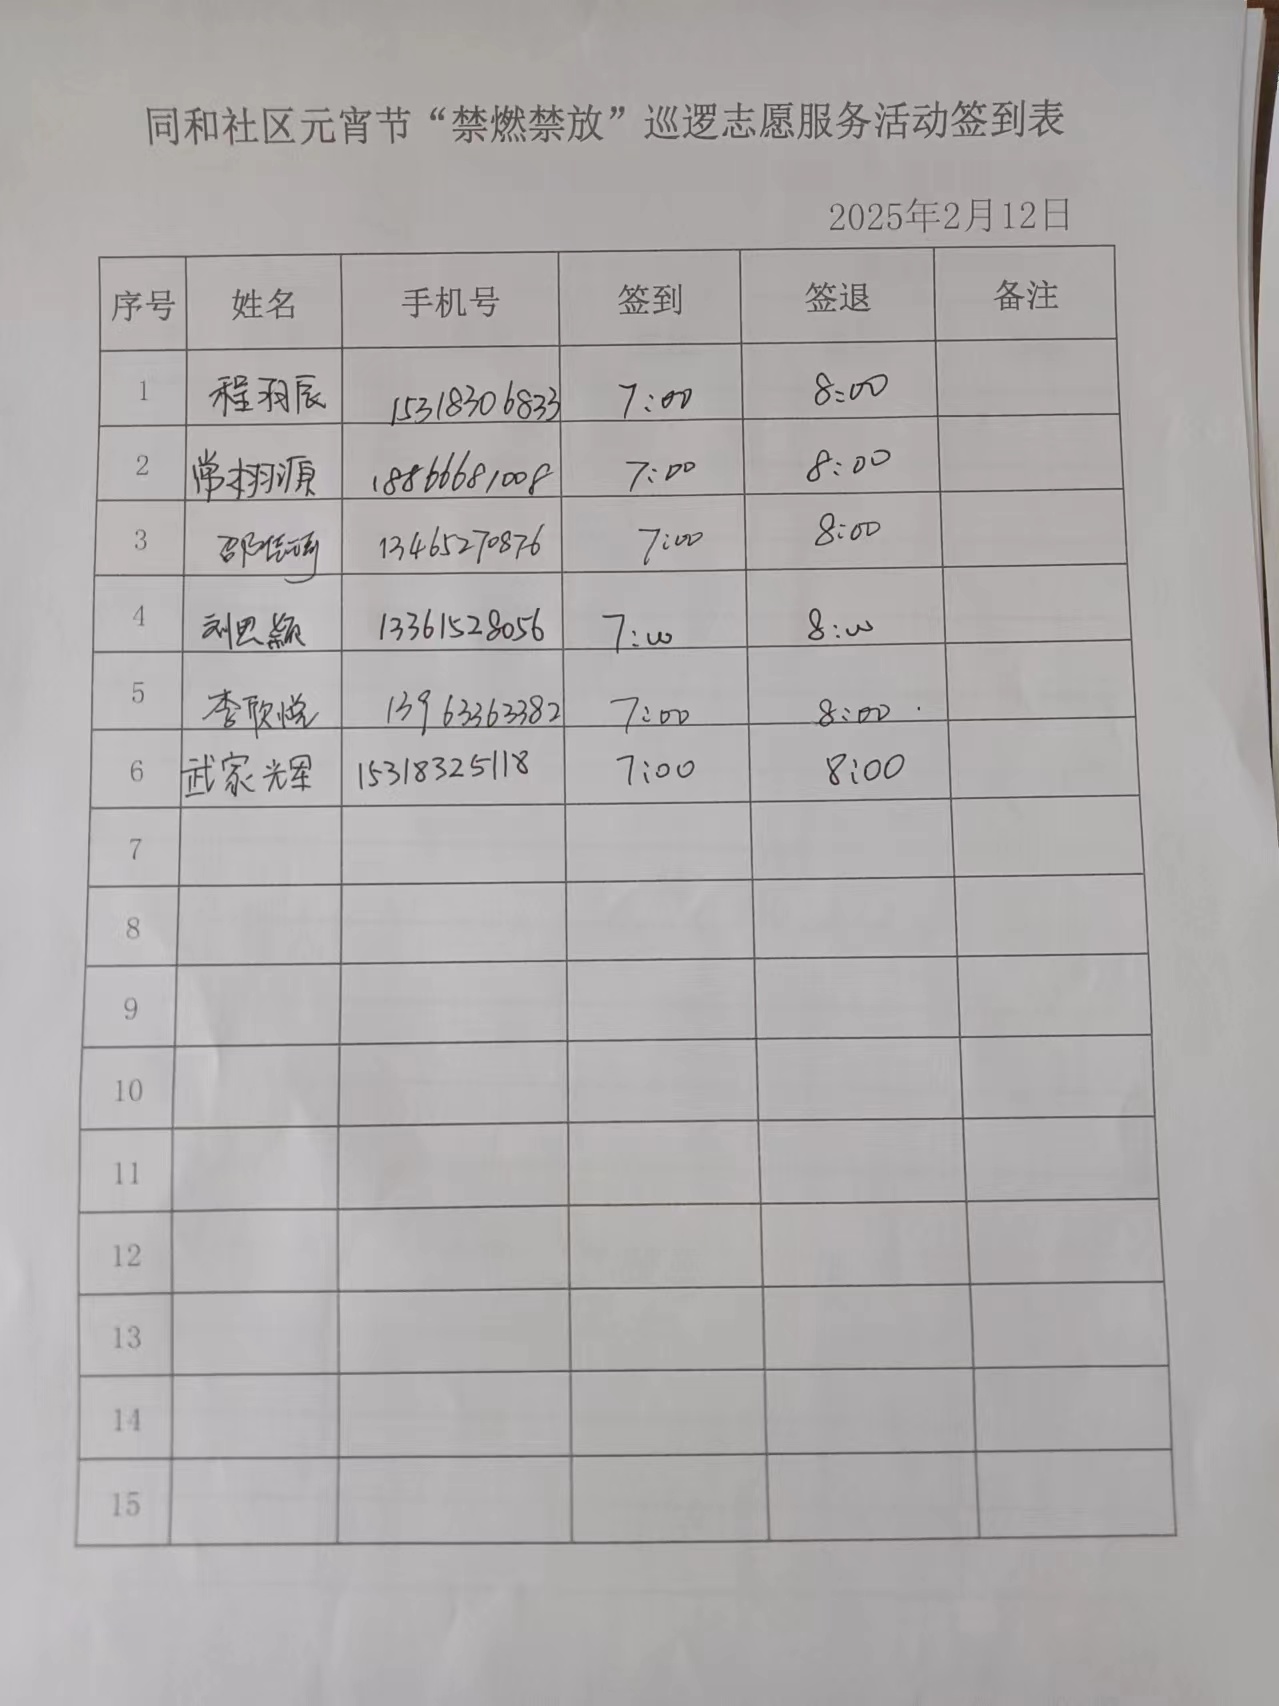 同和社区元宵节“禁燃禁放”巡逻志愿服务活动签到表
2025年2月12日
序号 姓名 手机号 签到 签退 备注
1 程羽辰 15318306833 7:00 8:00
2 常栩源 18866681008 7:00 8:00
3 邵佳琦 13465270876 7:00 8:00
4 刘思颖 13361528056 7:00 8:00
5 李欣悦 13963363382 7:00 8:00
6 武家光军 15318325118 7:00 8:00
7
8
9
10
11
12
13
14
15